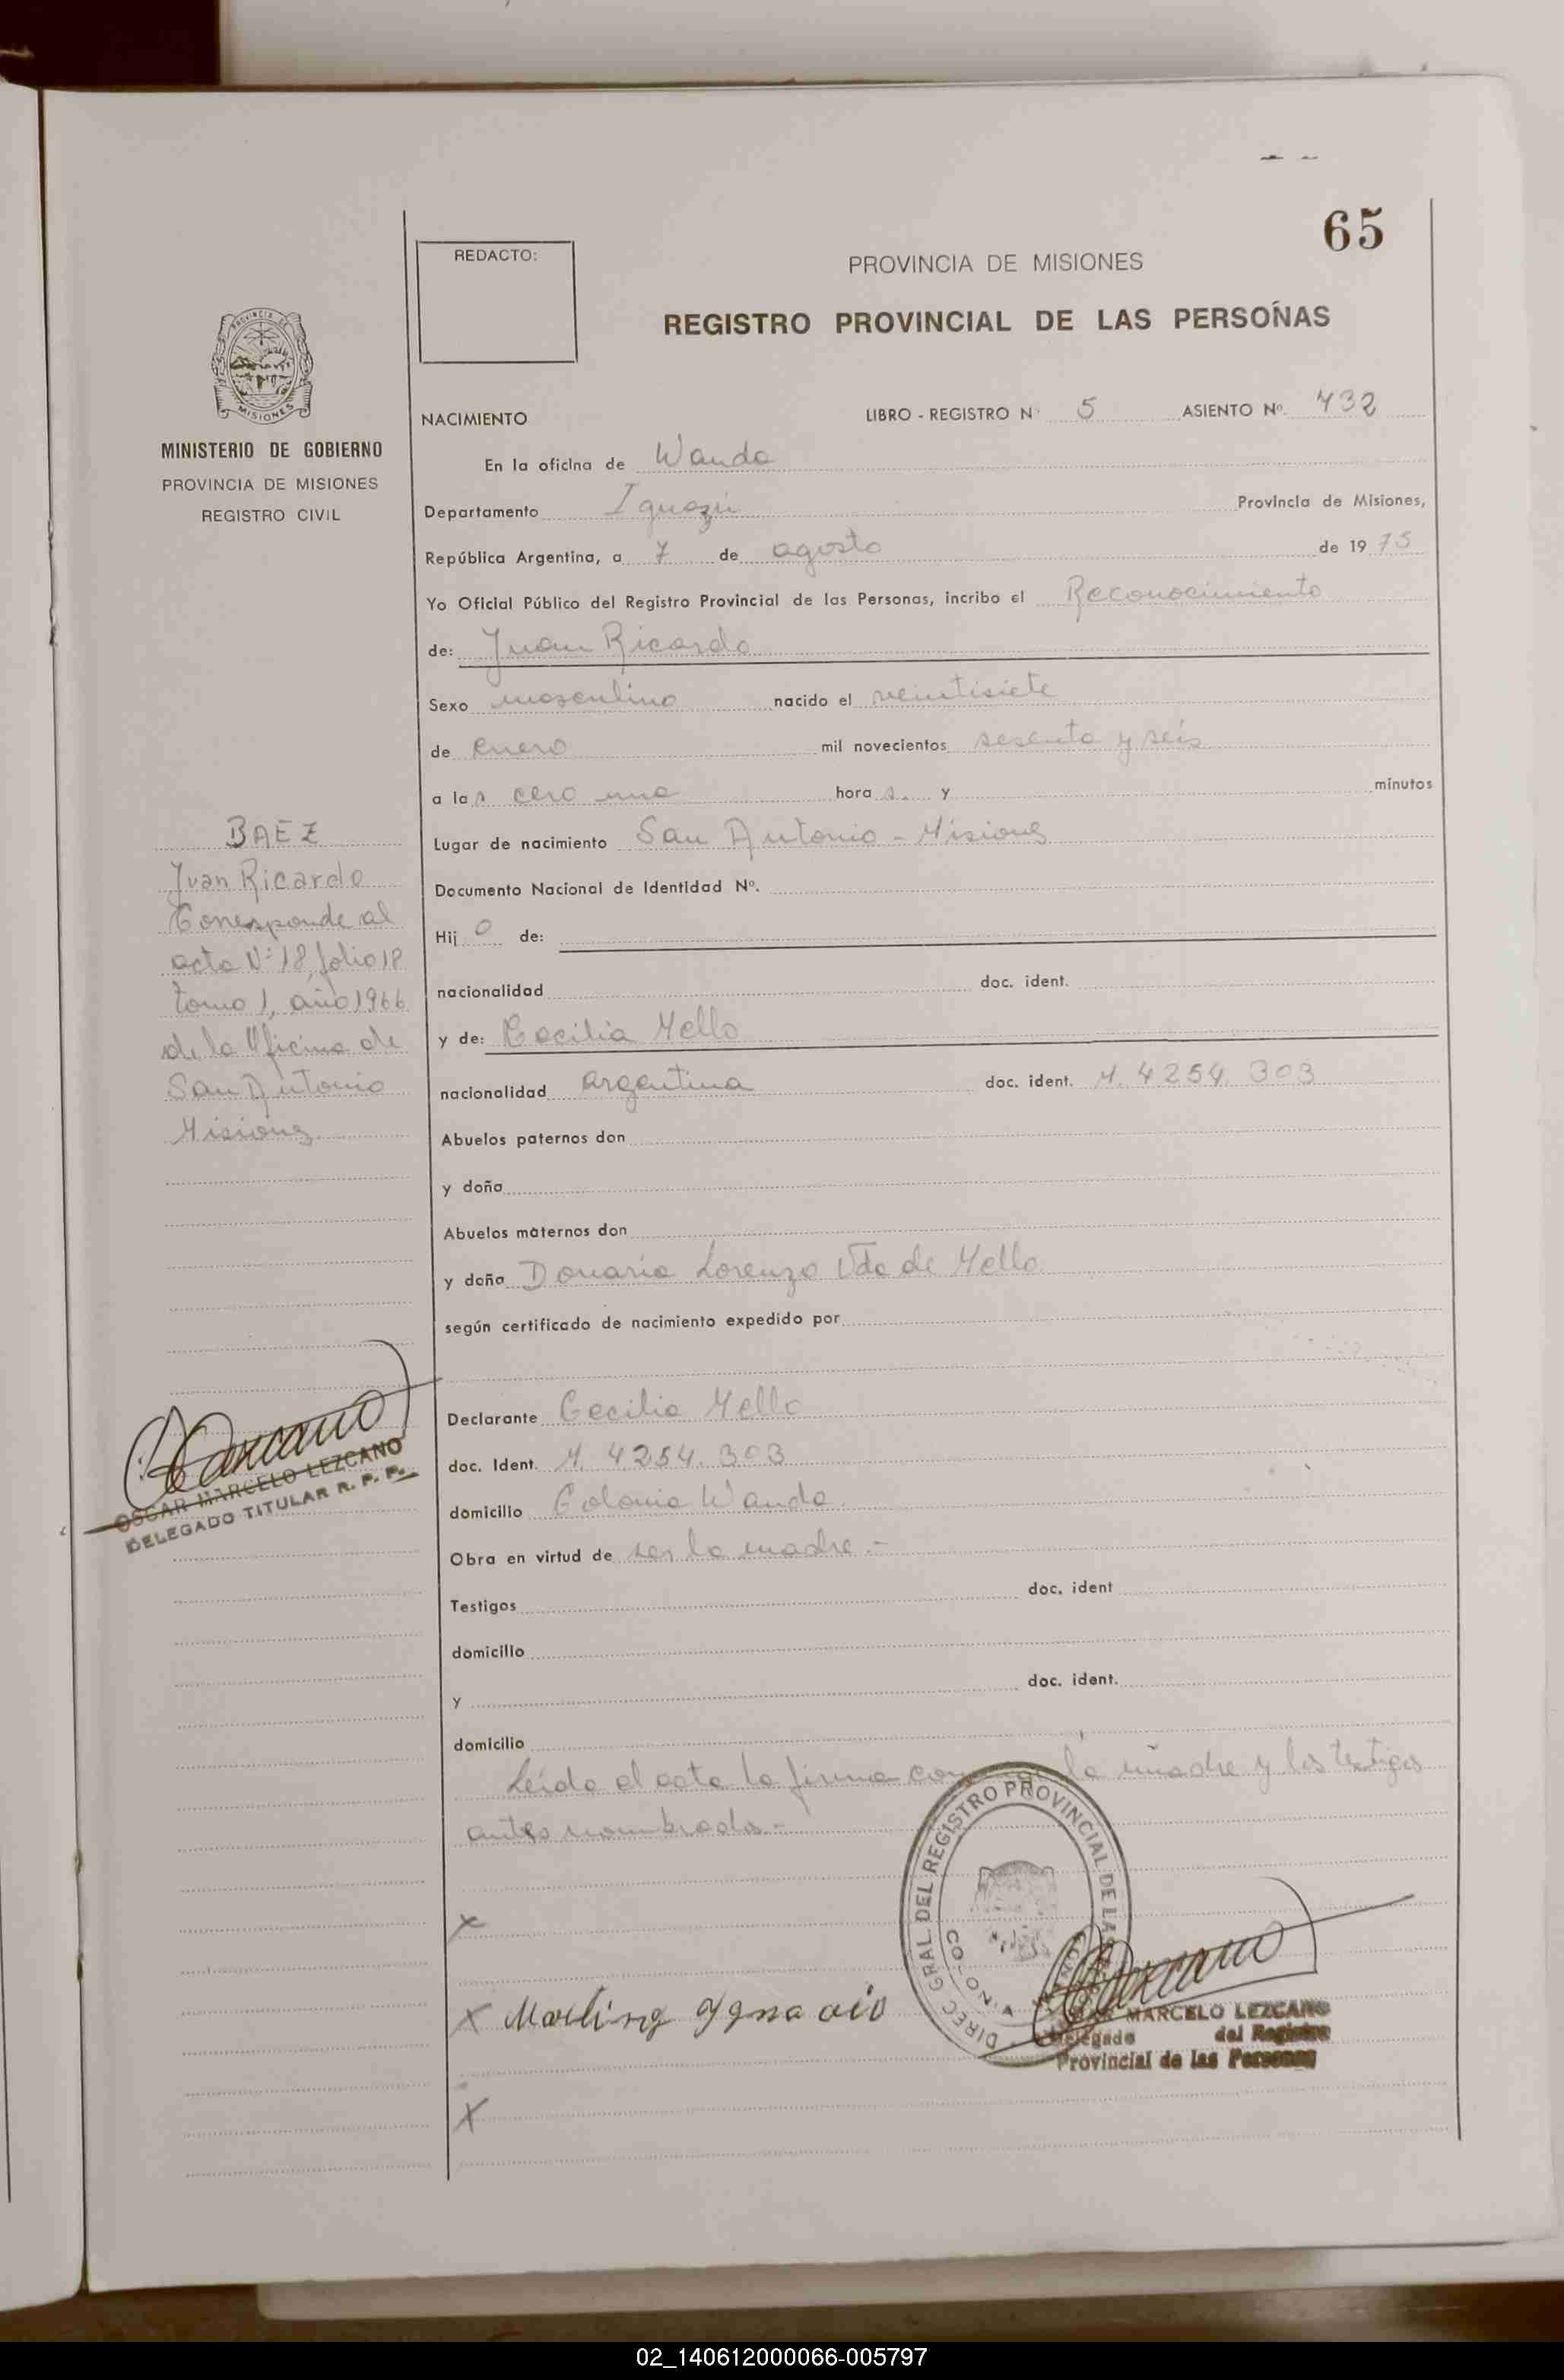 65
REDACTO:
PROVINCIA DE MISIONES
REGISTRO PROVINCIAL DE LAS PERSOÑAS
PROVINCIA DE
MISIONES
MINISTERIO DE GOBIERNO
PROVINCIA DE MISIONES
REGISTRO CIVIL
NACIMIENTO LIBRO - REGISTRO N° 5 ASIENTO Nº 432
En la oficina de Wanda
Departamento Iguazú Provincia de Misiones,
República Argentina, a 7 de agosto de 1975
Yo Oficial Público del Registro Provincial de las Personas, incribo el Reconocimiento
de: Juan Ricardo
Sexo masculino nacido el veintisiete
de enero mil novecientos sesenta y seis
a las cero una hora s. y minutos
Lugar de nacimiento San Antonio - Misiones
Documento Nacional de Identidad Nº.
Hijo de:
nacionalidad doc. ident.
y de: Cecilia Mello
nacionalidad argentina doc. ident. M. 4254.303
Abuelos paternos don
y doña
Abuelos maternos don
y doña Donaria Lorenzo Vda de Mello
según certificado de nacimiento expedido por
Declarante Cecilia Mello
doc. Ident. M. 4.254.303
domicilio Colonia Wanda
Obra en virtud de ser la madre.-
Testigos doc. ident
domicilio
y doc. ident.
domicilio
Leída el acta la firma la madre y los testigos
antes nombrados.-
BAEZ
Juan Ricardo
Corresponde al
acta Nº 18, folio 18
tomo 1, año 1966
de la Oficina de
San Antonio
Misiones
OSCAR MARCELO LEZCANO
DELEGADO TITULAR R. P. P.
X
X Martinz Ygnacio
X
DIREC GRAL DEL REGISTRO PROVINCIAL DE LAS
MARCELO LEZCANO
Delegado del Registro
Provincial de las Personas
02_140612000066-005797